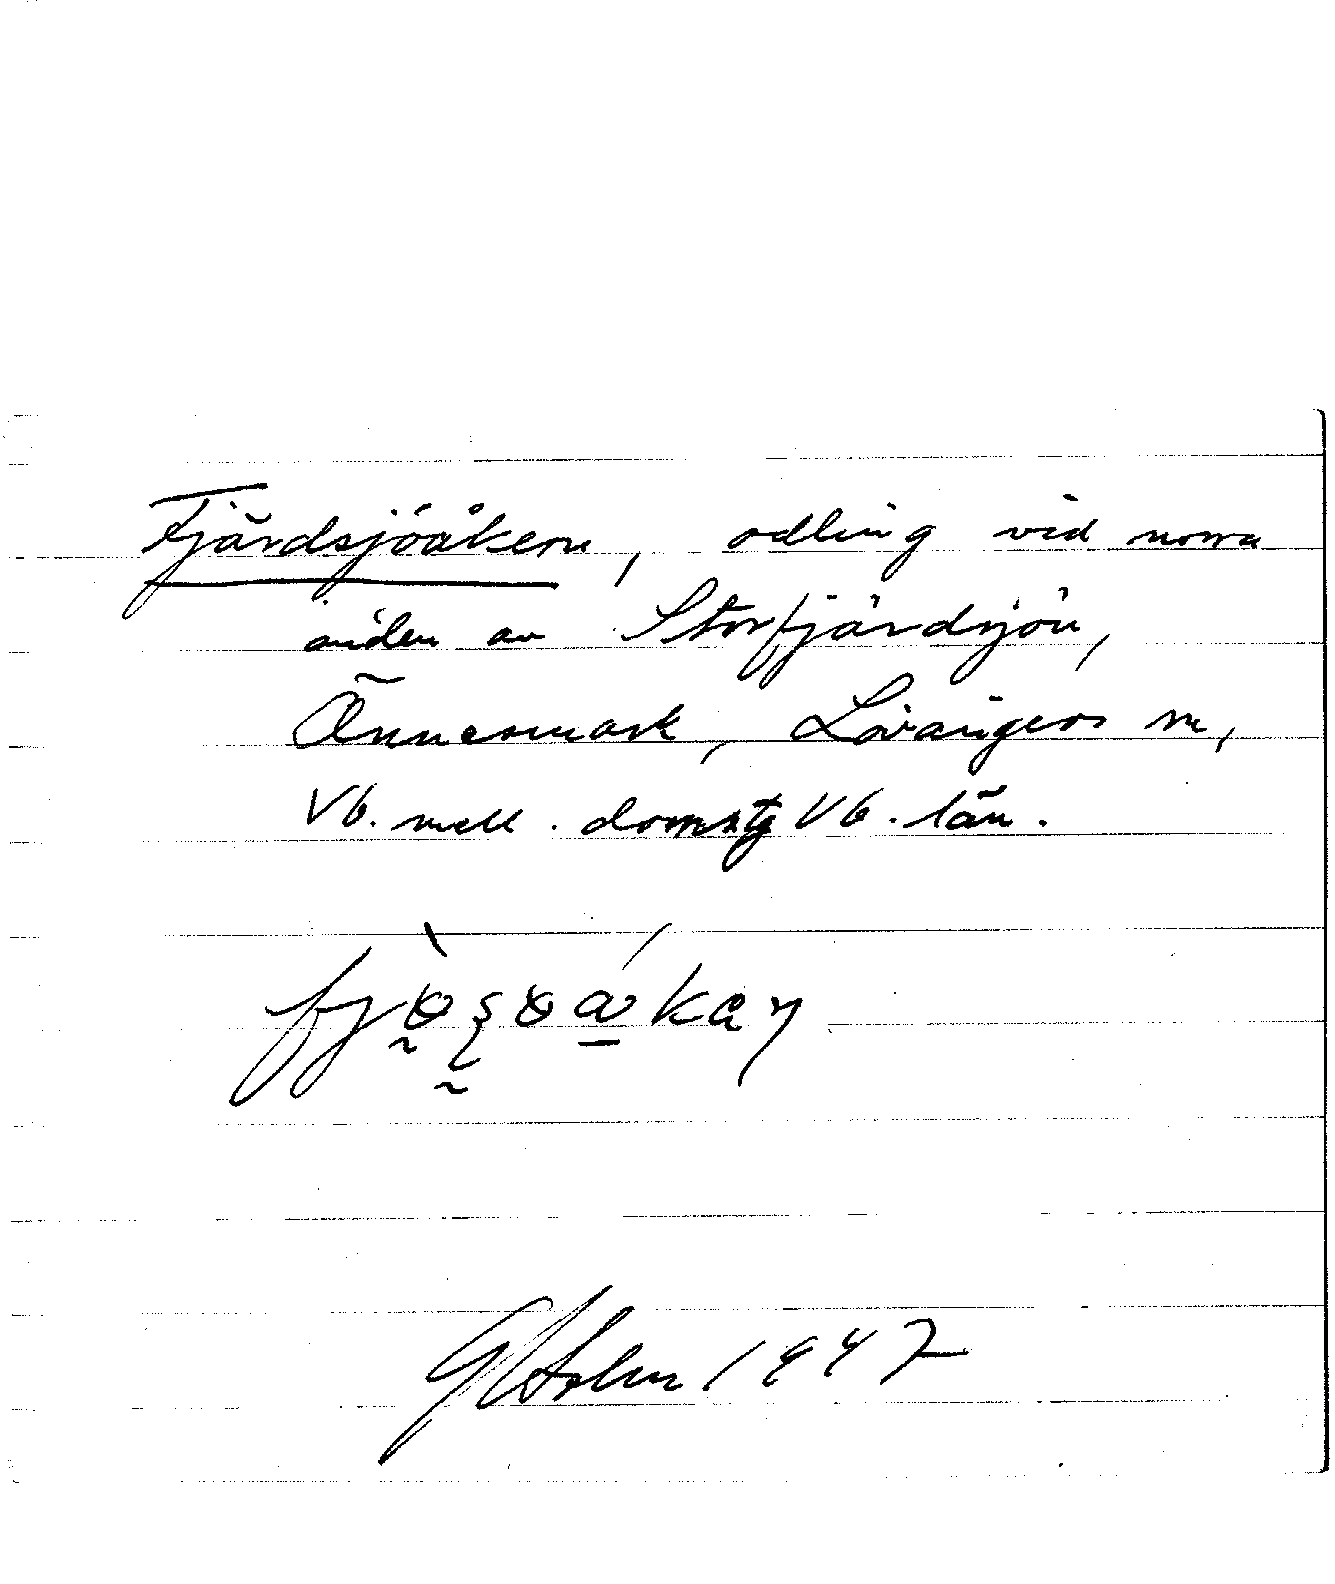 Fjärdsjöåkern, odling vid norra
sidan av Storfjärdsjön,
Önnesmark, Lövångers sn,
Vb. mell. domstg Vb. län.
G Holm 1947